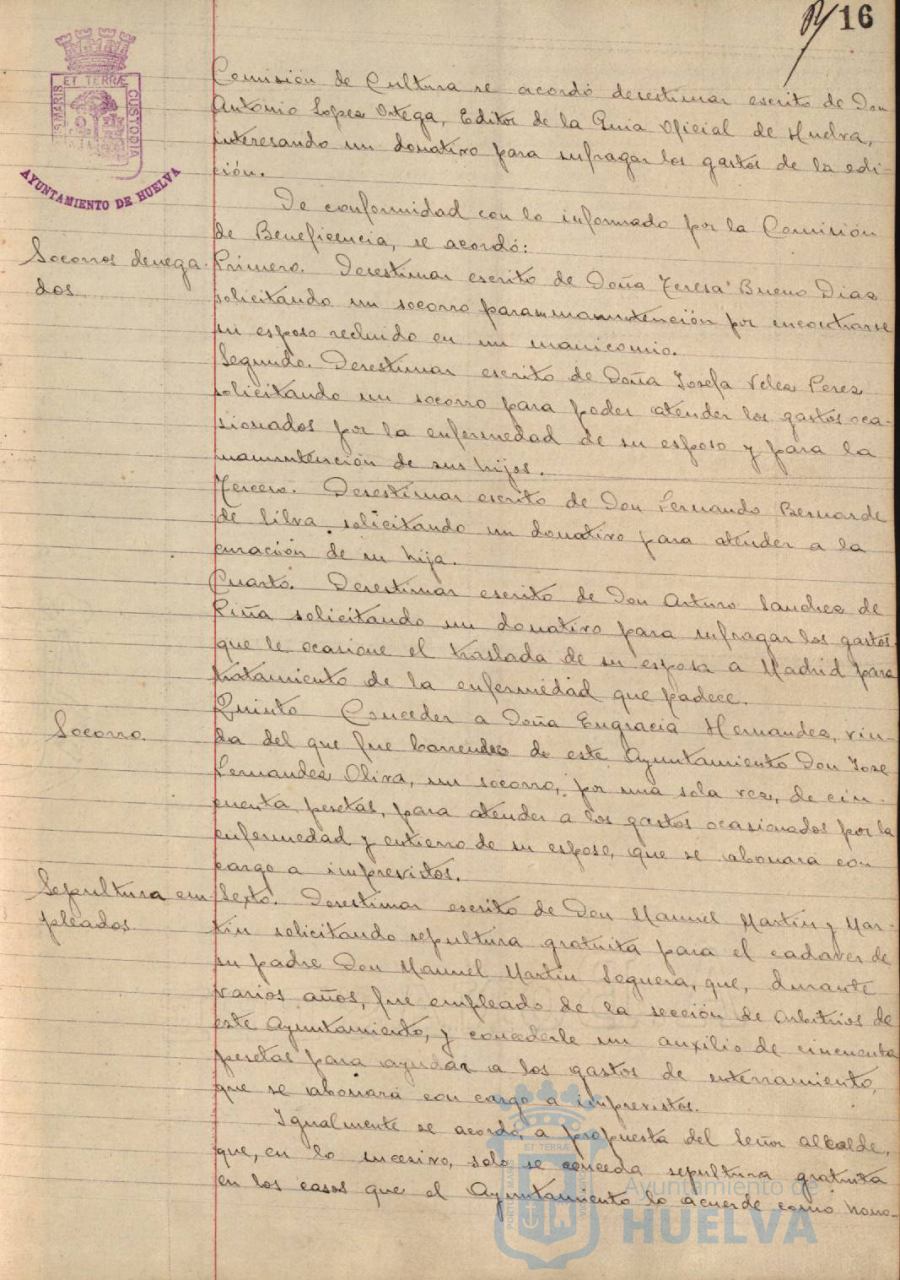 16
ET TERRÆ
CUSTODIA
AYUNTAMIENTO DE HUELVA
Comisión de Cultura se acordó desestimar escrito de Don
Antonio Lopez Ortega, Editor de la Guia Oficial de Huelva,
interesando un donativo para sufragar los gastos de la edi-
ción.
De conformidad con lo informado por la Comisión
de Beneficencia, se acordó:
Socorros denega-
dos
Primero. Desestimar escrito de Doña Teresa Bueno Diaz
solicitando un socorro para manutención por encontrarse
su esposo recluido en un manicomio.
Segundo. Desestimar escrito de Doña Josefa Velez Perez
solicitando un socorro para poder atender los gastos oca-
sionados por la enfermedad de su esposo y para la
manutención de sus hijos.
Tercero. Desestimar escrito de Don Fernando Bernarde
de Silva solicitando un donativo para atender a la
curación de su hija.
Cuarto. Desestimar escrito de Don Arturo Sanchez de
Piña solicitando un donativo para sufragar los gastos
que le ocasione el traslada de su esposa a Madrid para
tratamiento de la enfermedad que padece.
Socorro.
Quinto Conceder a Doña Engracia Hernandez, viu-
da del que fue barrendero de este Ayuntamiento Don Jose
Fernandez Oliva, un socorro, por una sola vez, de cin-
cuenta pesetas, para atender a los gastos ocasionados por la
enfermedad y entierro de su esposo, que se abonara con
cargo a imprevistos.
Sepultura em-
pleados
Sexto. Desestimar escrito de Don Manuel Martin y Mar-
tin solicitando sepultura gratuita para el cadaver de
su padre Don Manuel Martin Seguera, que, durante
varios años, fue empleado de la sección de Arbitrios de
este Ayuntamiento, y concederle un auxilio de cincuenta
pesetas para ayudar a los gastos de enterramiento,
que se abonará con cargo a imprevistos.
Igualmente se acordó, a propuesta del Señor Alcalde,
que, en lo sucesivo, solo se conceda sepultura gratuita
en los casos que el Ayuntamiento lo acuerde como hono-
Ayuntamiento de
HUELVA